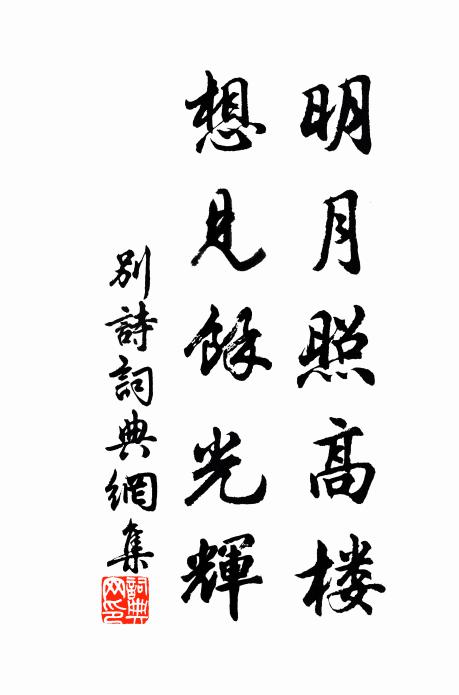 明月照高楼
想見餘光輝
别詩詞典網集
詞典网印